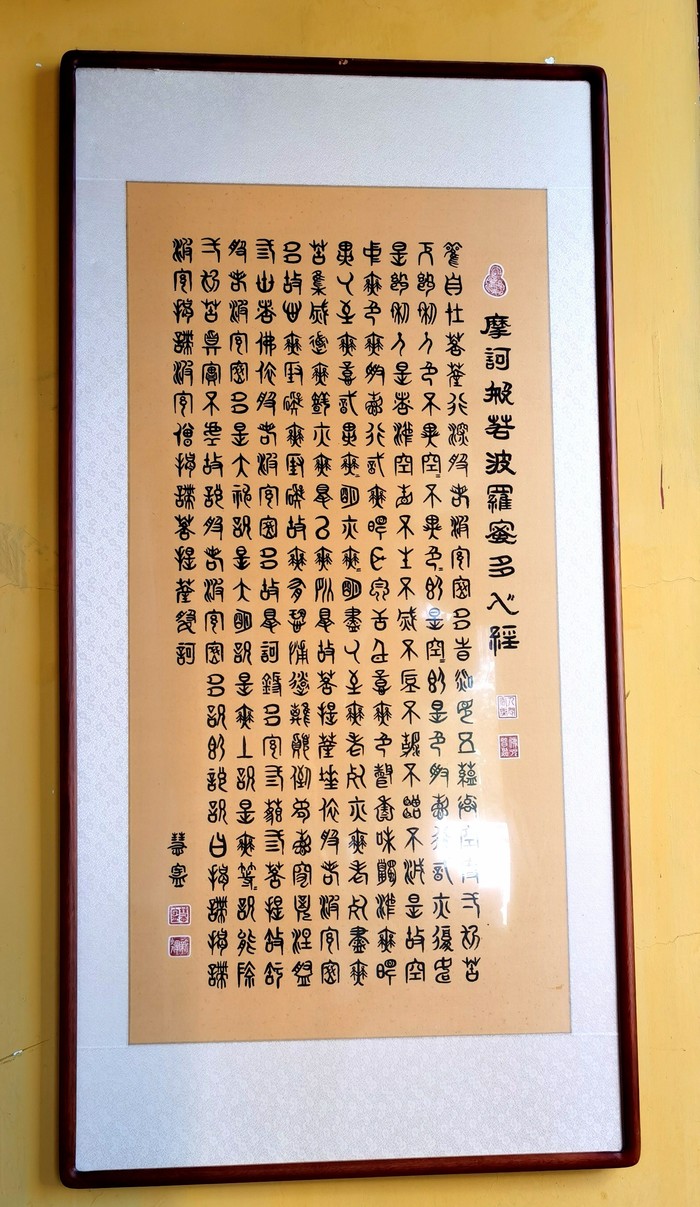 摩訶般若波羅蜜多心經
觀自在菩薩行深般若波羅蜜多時照見五蘊皆空度一切苦
厄舍利子色不異空〻不異色〻即是空〻即是色受想行識亦復如
是舍利子是諸法空相不生不滅不垢不淨不增不減是故空
中無色無受想行識無眼耳鼻舌身意無色聲香味觸法無眼
界乃至無意識界無〻明亦無〻明盡乃至無老死亦無老死盡無
苦集滅道無智亦無得以無所得故菩提薩埵依般若波羅蜜
多故心無罣礙無罣礙故無有恐怖遠離顛倒夢想究竟涅槃
三世諸佛依般若波羅蜜多故得阿耨多羅三藐三菩提故知
般若波羅蜜多是大神咒是大明咒是無上咒是無等〻咒能除
一切苦真實不虛故說般若波羅蜜多咒即說咒曰揭諦揭諦
波羅揭諦波羅僧揭諦菩提薩婆訶
慧